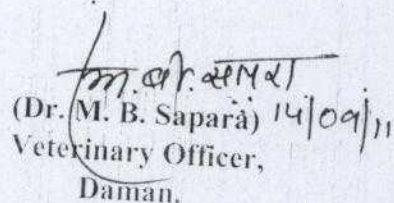 एम. बी. सापरा
(Dr. M. B. Sapara) 14/09/11
Veterinary Officer,
Daman.